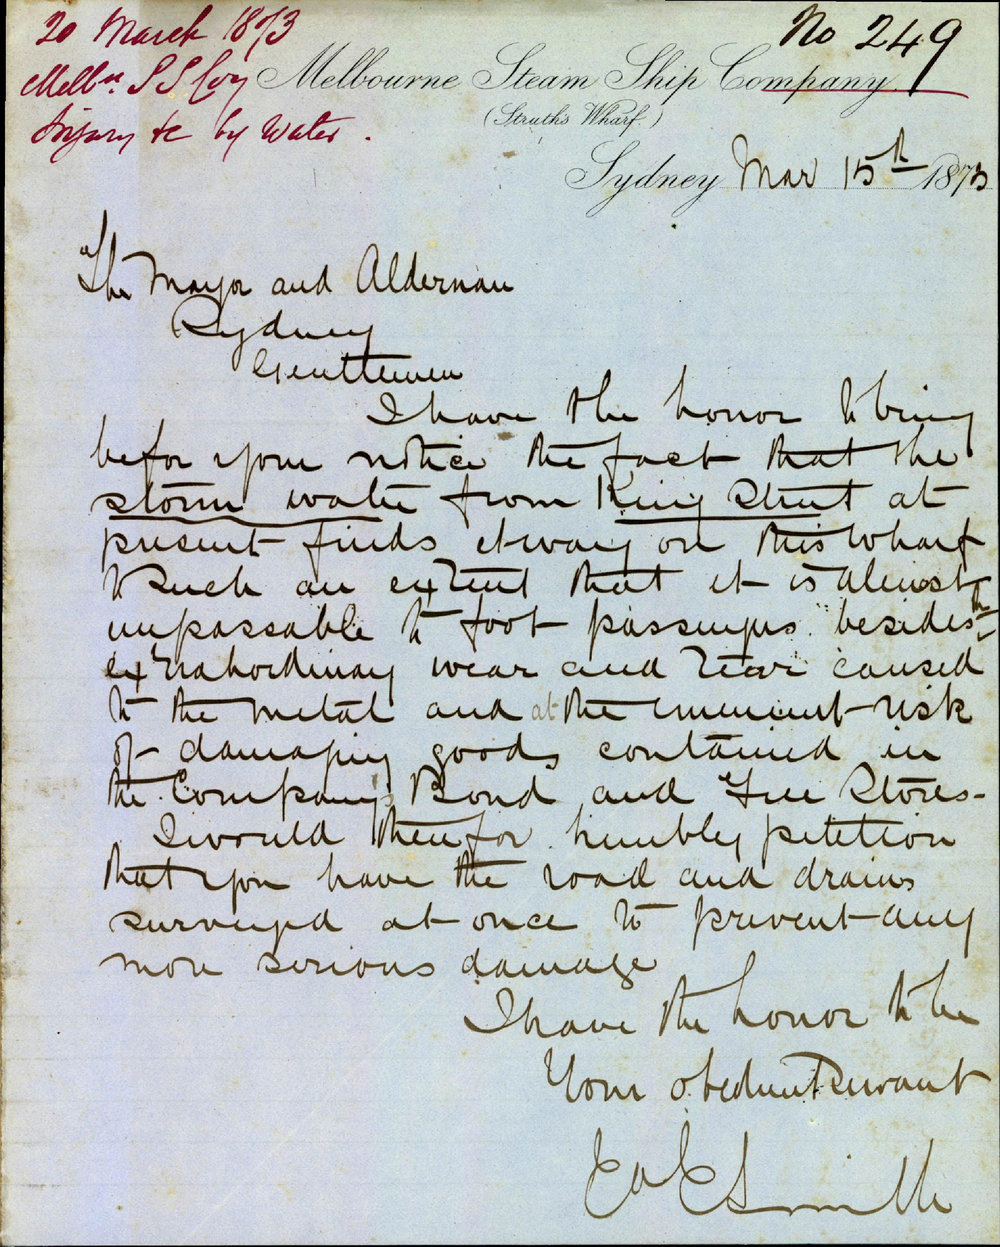 20 March 1873
No 249
Melbn S S Coy
Melbourne Steam Ship Company
Injury &c by Water.
(Struth's Wharf.)
Sydney Mar 15th 1873
The Mayor and Alderman
Sydney
Gentlemen
I have the honor to bring
befor your notice the fact that the
storm water from King Street at
present finds its way on this Wharf
to such an extent that it is almost
unpassable to foot passengers. besides the
extrahordinary wear and tear caused
to the metal and at the eminent risk
of damaging goods contained in
the Company's Bond and Free Stores-
I would therefor humbly petition
that you have the road and drains
surveyed at once to prevent any
more serious damage
I have the honor to be
Your obedient Servant
Smith